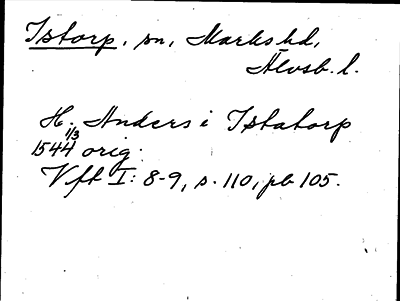 Istorp, sn, Marks hd,
Älvsb. l.
H. Anders i Istatorp
1/3
1544 orig.
Vft I: 8-9, s. 110, pb 105.